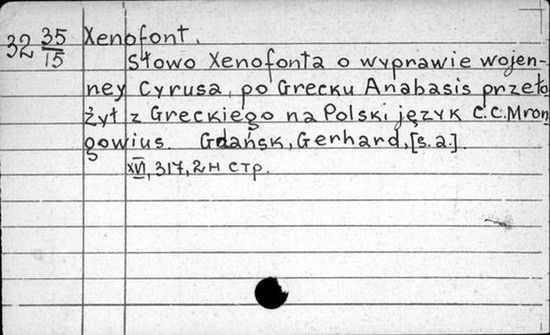 32 35/15 Xenofont.
Słowo Xenofonta o wyprawie wojen-
ney Cyrusa, po Grecku Anabasis przeło
żył z Greckiego na Polski język C.C. Mron
gowius. Gdańsk, Gerhard, [s.a.].
XVI, 317, 2н стр.